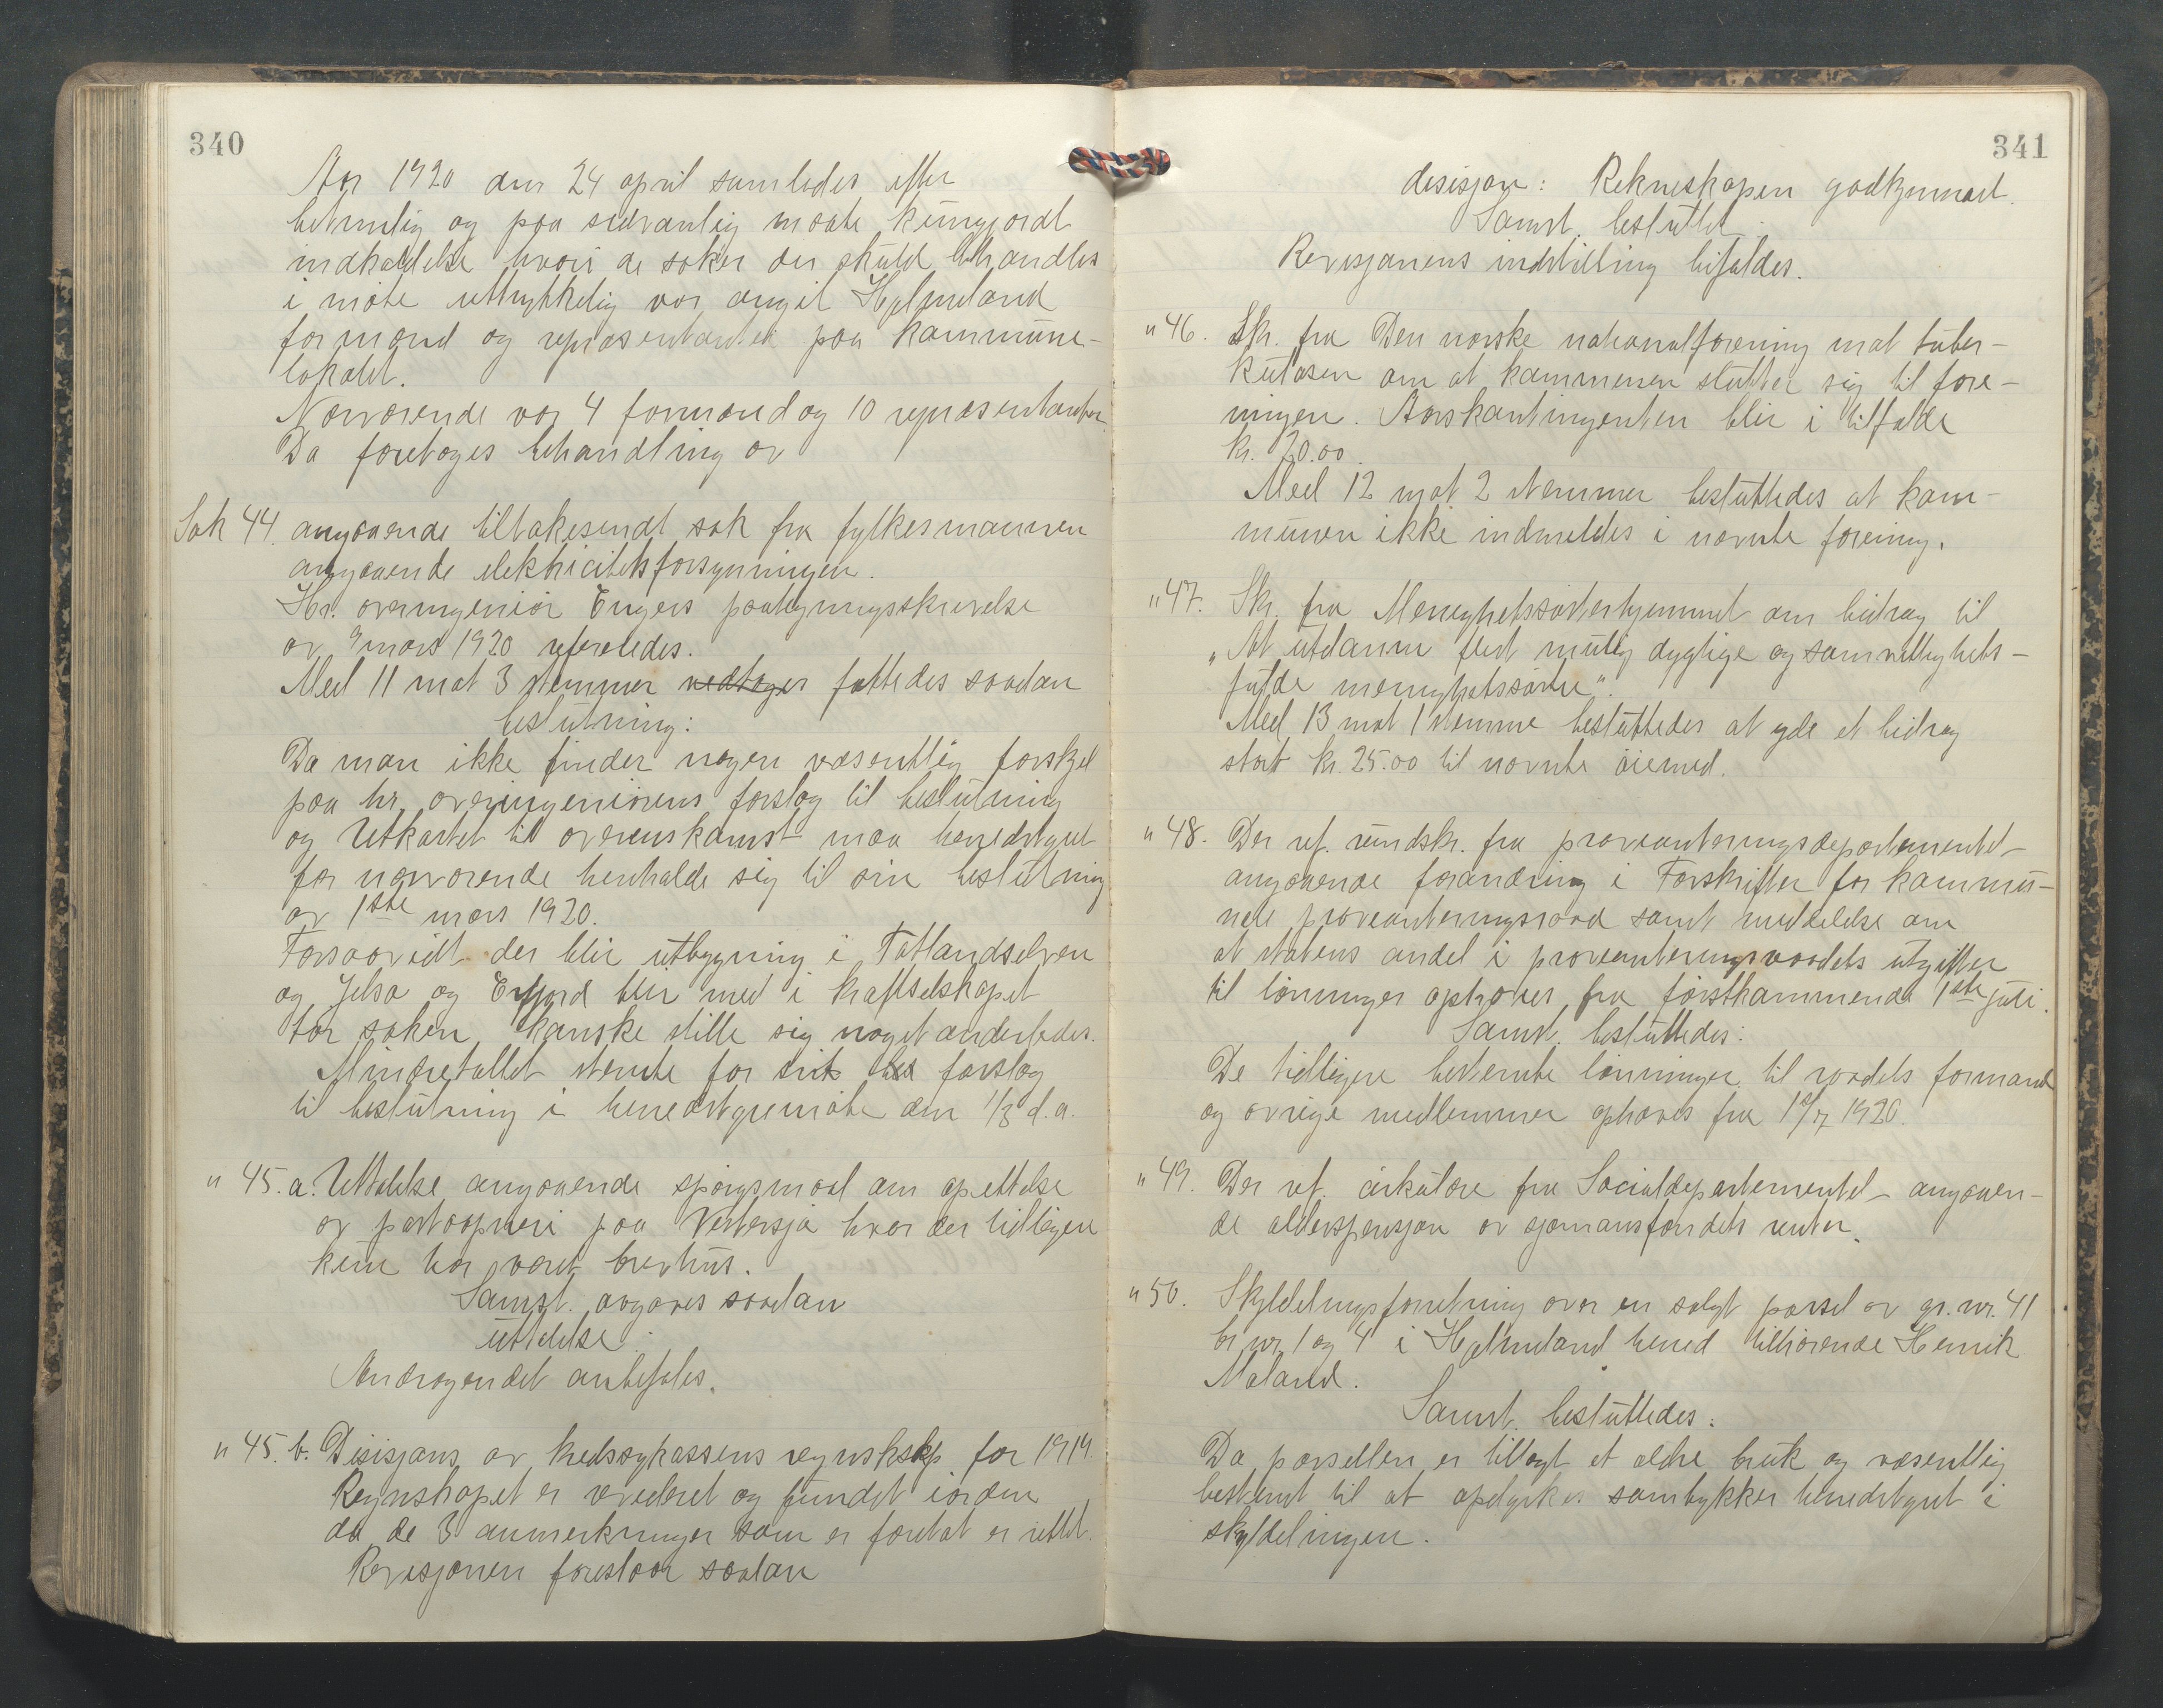 340
Aar 1920 den 24 april samledes efter
betimelig og paa sedvanlig maate kungjordt
indkaldelse hvori de saker der skuld behandles
i møte uttrykkelig var angit Hjelmeland
formænd og repræsentanter paa kommune-
lokalet.
Nærværende var 4 formænd og 10 repræsentanter.
Da foretoges behandling av
Sak 44. angaaende tilbakesendt sak fra fylkesmannen
angaaende elektricitetsforsyningen.
Hr. overingeniør Engers paategningsskrivelse
av 9 mars 1920 refereredes.
Med 11 mot 3 stemmer vedtoges fattedes saadan
beslutning:
Da man ikke finder nogen væsentlig forskjel
paa hr. overingeniørens forslag til beslutning
og Utkastet til overenskomst maa herredstyret
for nærværende henholde sig til sin beslutning
av 1ste mars 1920.
Forsaavidt der blir utbygning i Tøtlandselven
og Jelsa og Erfjord blir med i kraftselskapet
tør saken kanske stille sig noget anderledes.
Mindretallet stemte for sit forslag
til beslutning i herredstyremøte den 1/3 d.a.
" 45. a. Uttalelse angaaende spørgsmaal om oprettelse
av postaapneri paa Vestersjø hvor der tidligere
kun har været brevhus.
Samst. avgaves saadan
uttalelse:
Andragendet anbefales.
" 45. b. Disisjons av kredssykassens regnskap for 1919.
Regnskapet er revideret og fundet iorden
da de 3 anmerkninger som er foretat er rettet.
Revisjonen foreslaar saadan
341
desisjon: Rekneskapen godkjennast.
Samst. besluttet
Revisjonens indstilling bifaldes.
" 46. Skr. fra Den norske nationalforening mot tuber-
kulosen om at kommunen slutter sig til fore-
ningen. Aarskontingenten blir i tilfælde
kr. 20.00.
Med 12 mot 2 stemmer besluttedes at kom-
munen ikke indmeldes i nævnte forening.
" 47. Skr. fra Menighetssøsterhjemmet om bidrag til
„At utdanne flest mulig dygtige og samvittighets-
fulde menighetssøstre".
Med 13 mot 1 stemme besluttedes at yde et bidrag
stort kr. 25.00 til nævnte øiemed.
" 48. Der ref. rundskr. fra provianteringsdepartementet
angaaende forandring i Forskrifter for kommu-
nele provianteringsraad samt meddelelse om
at statens andel i provianteringsraadets utgifter
til lønninger ophører fra førstkommende 1ste juli.
Samst. besluttedes:
De tidligere bestemte lønninger til raadets formand
og øvrige medlemmer ophæves fra 1/7 1920.
" 49. Der ref. cirkulære fra Socialdepartementet angaaen-
de alderspensjon av sjømansfondets renter.
" 50. Skyldelingsforretning over en solgt parsel av gr. nr. 41
br. nr. 1 og 4 i Hjelmeland herred tilhørende Henrik
Maland.
Samst. besluttedes:
Da parsellen er tillagt et ældre bruk og væsentlig
bestemt til at opdyrkes samtykker herredstyret i
skyldelingen.